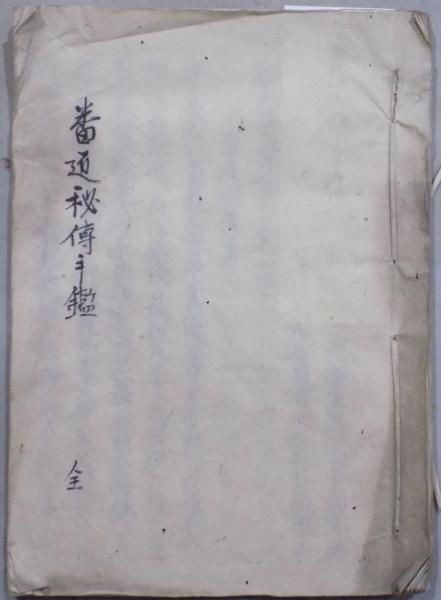 番匠秘傳手鑑
全